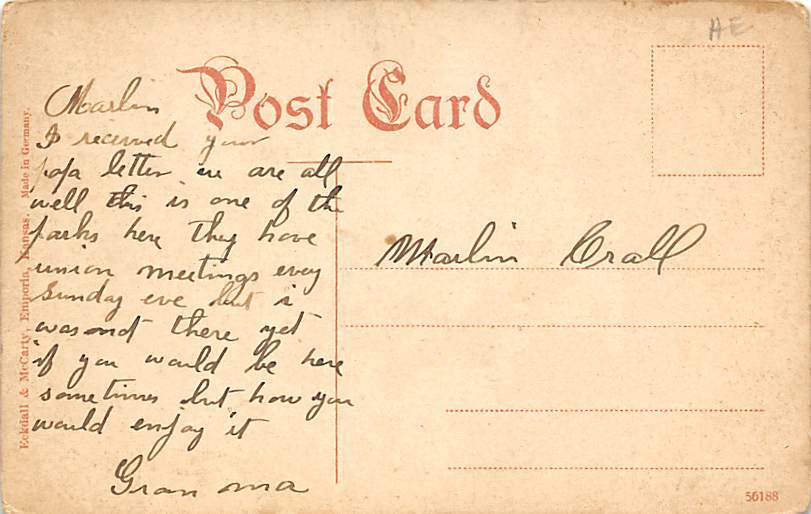 AE
Post Card
Marlin
I received your
papa letter we are all
well this is one of the
parks here they have
union meetings evey
Sunday eve but i
was not there yet
if you would be here
sometimes but how you
would enjoy it
Gran ma
Marlin Crall
Eckdall & McCarty, Emporia, Kansas. Made in Germany.
56188